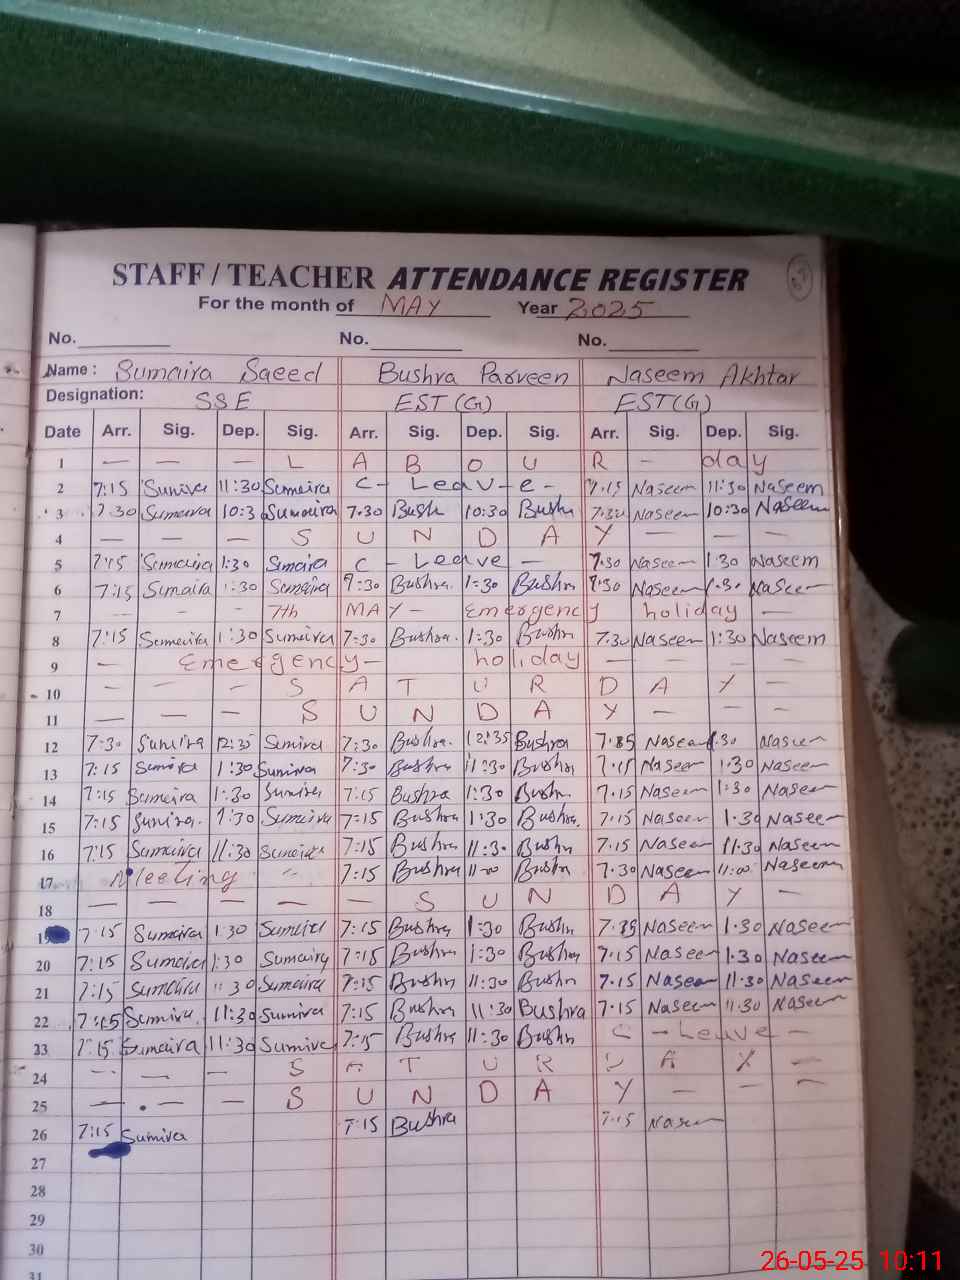 STAFF / TEACHER ATTENDANCE REGISTER
For the month of MAY Year 2025
No. No. No.
Name : Sumaira Saeed Bushra Parveen Naseem Akhtar
Designation: SSE EST (G) EST (G)
Date Arr. Sig. Dep. Sig. Arr. Sig. Dep. Sig. Arr. Sig. Dep. Sig.
1 — — — L A B O U R - day
2 7:15 Sumira 11:30 Sumaira C - Leave - 7.15 Naseem 11:30 Naseem
3 7.30 Sumaira 10:3 Sumaira 7.30 Bush 10:30 Bushr 7.30 Naseem 10:30 Naseem
4 — — — S U N D A Y
5 7:15 Sumaira 1:30 Sumaira C - Leave - 7.30 Naseem 1.30 Naseem
6 7:15 Sumaira 1:30 Sumaira 7:30 Bushra. 1:30 Bushra 7.30 Naseem 1.30 Naseem
7 - - - 7th MAY - Emergency holiday —
8 7:15 Sumaira 1:30 Sumaira 7:30 Bushra. 1:30 Bushr 7.30 Naseem 1:30 Naseem
9 — Emergency - holiday — — — —
10 - - - S A T U R D A Y -
11 — — — S U N D A Y - - -
12 7:30 Sumaira 12:35 Sumira 7:30 Bushra. 12:35 Bushra Naseem 1.30 Naseem
13 7:15 Sumaira 1:30 Sumira 7:30 Bushra 11:30 Bushra 7.15 Naseem 1:30 Naseem
14 7:15 Sumaira 1:30 Sumaira 7:15 Bushra 1:30 Bushr. 7.15 Naseem 1:30 Naseem
15 7:15 Sumira. 1:30 Sumaira 7:15 Bushra 1:30 Bushra. 7.15 Naseem 1.30 Naseem
16 7:15 Sumaira 11:30 Sumaira 7:15 Bushra 11:30 Bushra 7.15 Naseem 11.30 Naseem
17 Meeting " 7:15 Bushra 11:00 Bushra 7.30 Naseem 11:00 Naseem
18 — — — — — S U N D A Y -
7:15 Sumaira 1:30 Sumaira 7:15 Bushra 1:30 Bushra Naseem 1.30 Naseem
20 7:15 Sumaira 1:30 Sumaira 7:15 Bushra 1:30 Bushra 7.15 Naseem 1.30 Naseem
21 7:15 Sumaira 11:30 Sumaira 7:15 Bushra 11:30 Bushra 7.15 Naseem 11.30 Naseem
22 7:15 Sumira. 11:30 Sumira 7:15 Bushra 11:30 Bushra 7.15 Naseem 11.30 Naseem
23 7:15 Sumaira 11:30 Sumira 7:15 Bushra 11:30 Bushra C - Leave -
24 - — — S A T U R D A Y —
25 — — — S U N D A Y — — —
26 7:15 Sumira 7:15 Bushra 7.15 Naseem
27
28
29
30
31
26-05-25 10:11